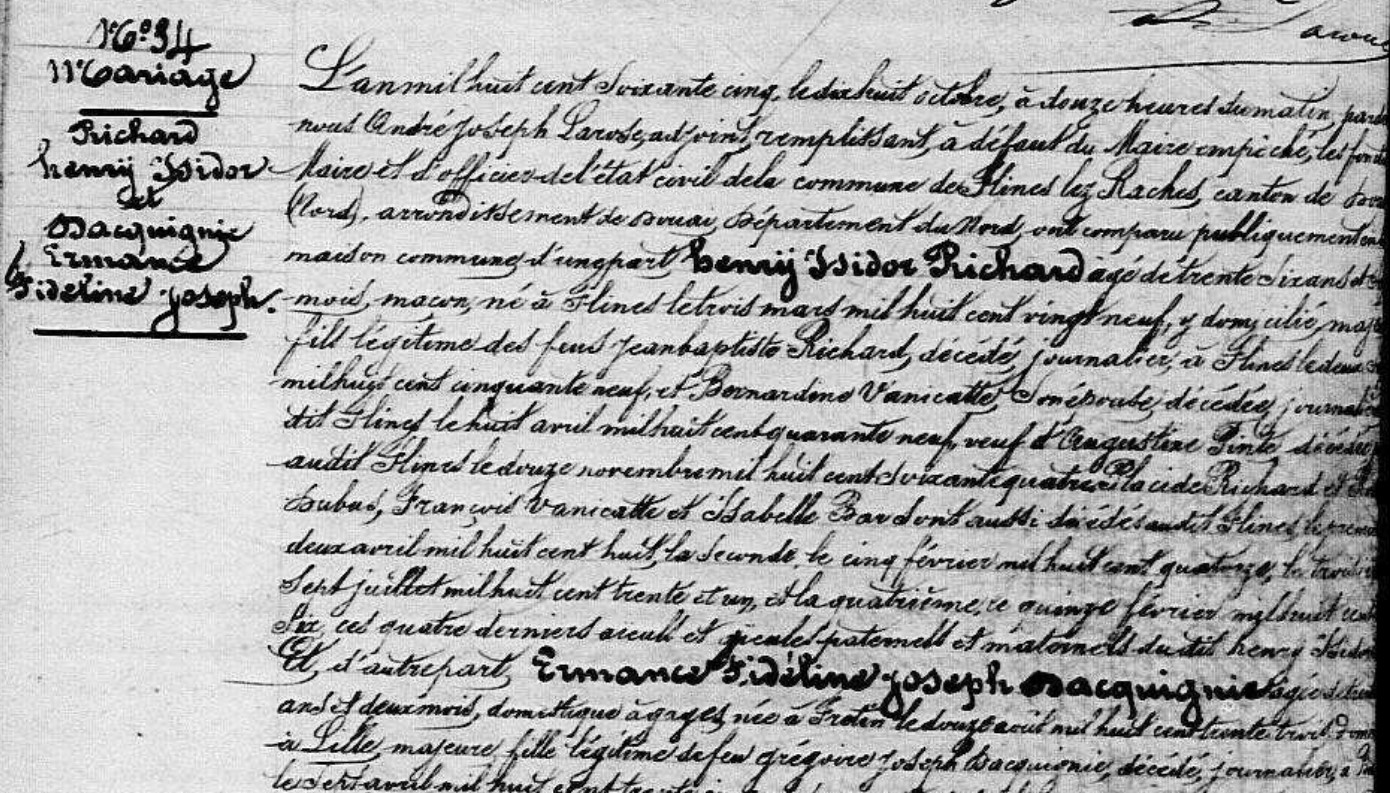 N° 34
Mariage
Richard
henry Isidor
et
Dacquignie
Ermance
Fidéline Joseph.
L'an mil huit cent Soixante cinq, le dix huit octobre, à douze heures du matin, par
nous André Joseph Larose, adjoint, remplissant, à défaut du Maire empêché, les
Maire et d'officier de l'état civil de la commune de Flines lez Raches, canton de
(Nord), arrondissement de Douai, Département du Nord, ont comparu publiquement en
maison commune, d'une part henry Isidor Richard agé de trente Six ans et
mois, maçon, né à Flines le trois mars mil huit cent vingt neuf, y domicilié, maj
fils légitime des feus Jean baptiste Richard, décédé, journalier, à Flines le deux
mil huit cent cinquante neuf, et Bernardine Vanicatte, Son épouse, décédée, journal
dit Flines le huit avril mil huit cent quarante neuf, veuf d'Augustine Pinte décédée
audit Flines le douze novembre mil huit cent Soixante quatre, Placide Richard et
Dubus, François Vanicatte et Isabelle Bar dont aussi décédés audit Flines, le premier
deux avril mil huit cent huit, la Seconde, le cinq février mil huit cent quatorze, le troisi
Sept juillet mil huit cent trente et un, et la quatrième, le quinze février mil huit cent
Six, ces quatre derniers aieuls et aieules paternels et maternels du dit henry Isidor
Et, d'autre part, Ermance Fidéline Joseph Dacquignie agée de
ans et deux mois, domestique à gages, née à Fretin le douze août mil huit cent trente trois
à Lille, majeure, fille légitime de feu grégoire Joseph Dacquignie, décédé, journalier, à
le Sept avril mil huit cent trente